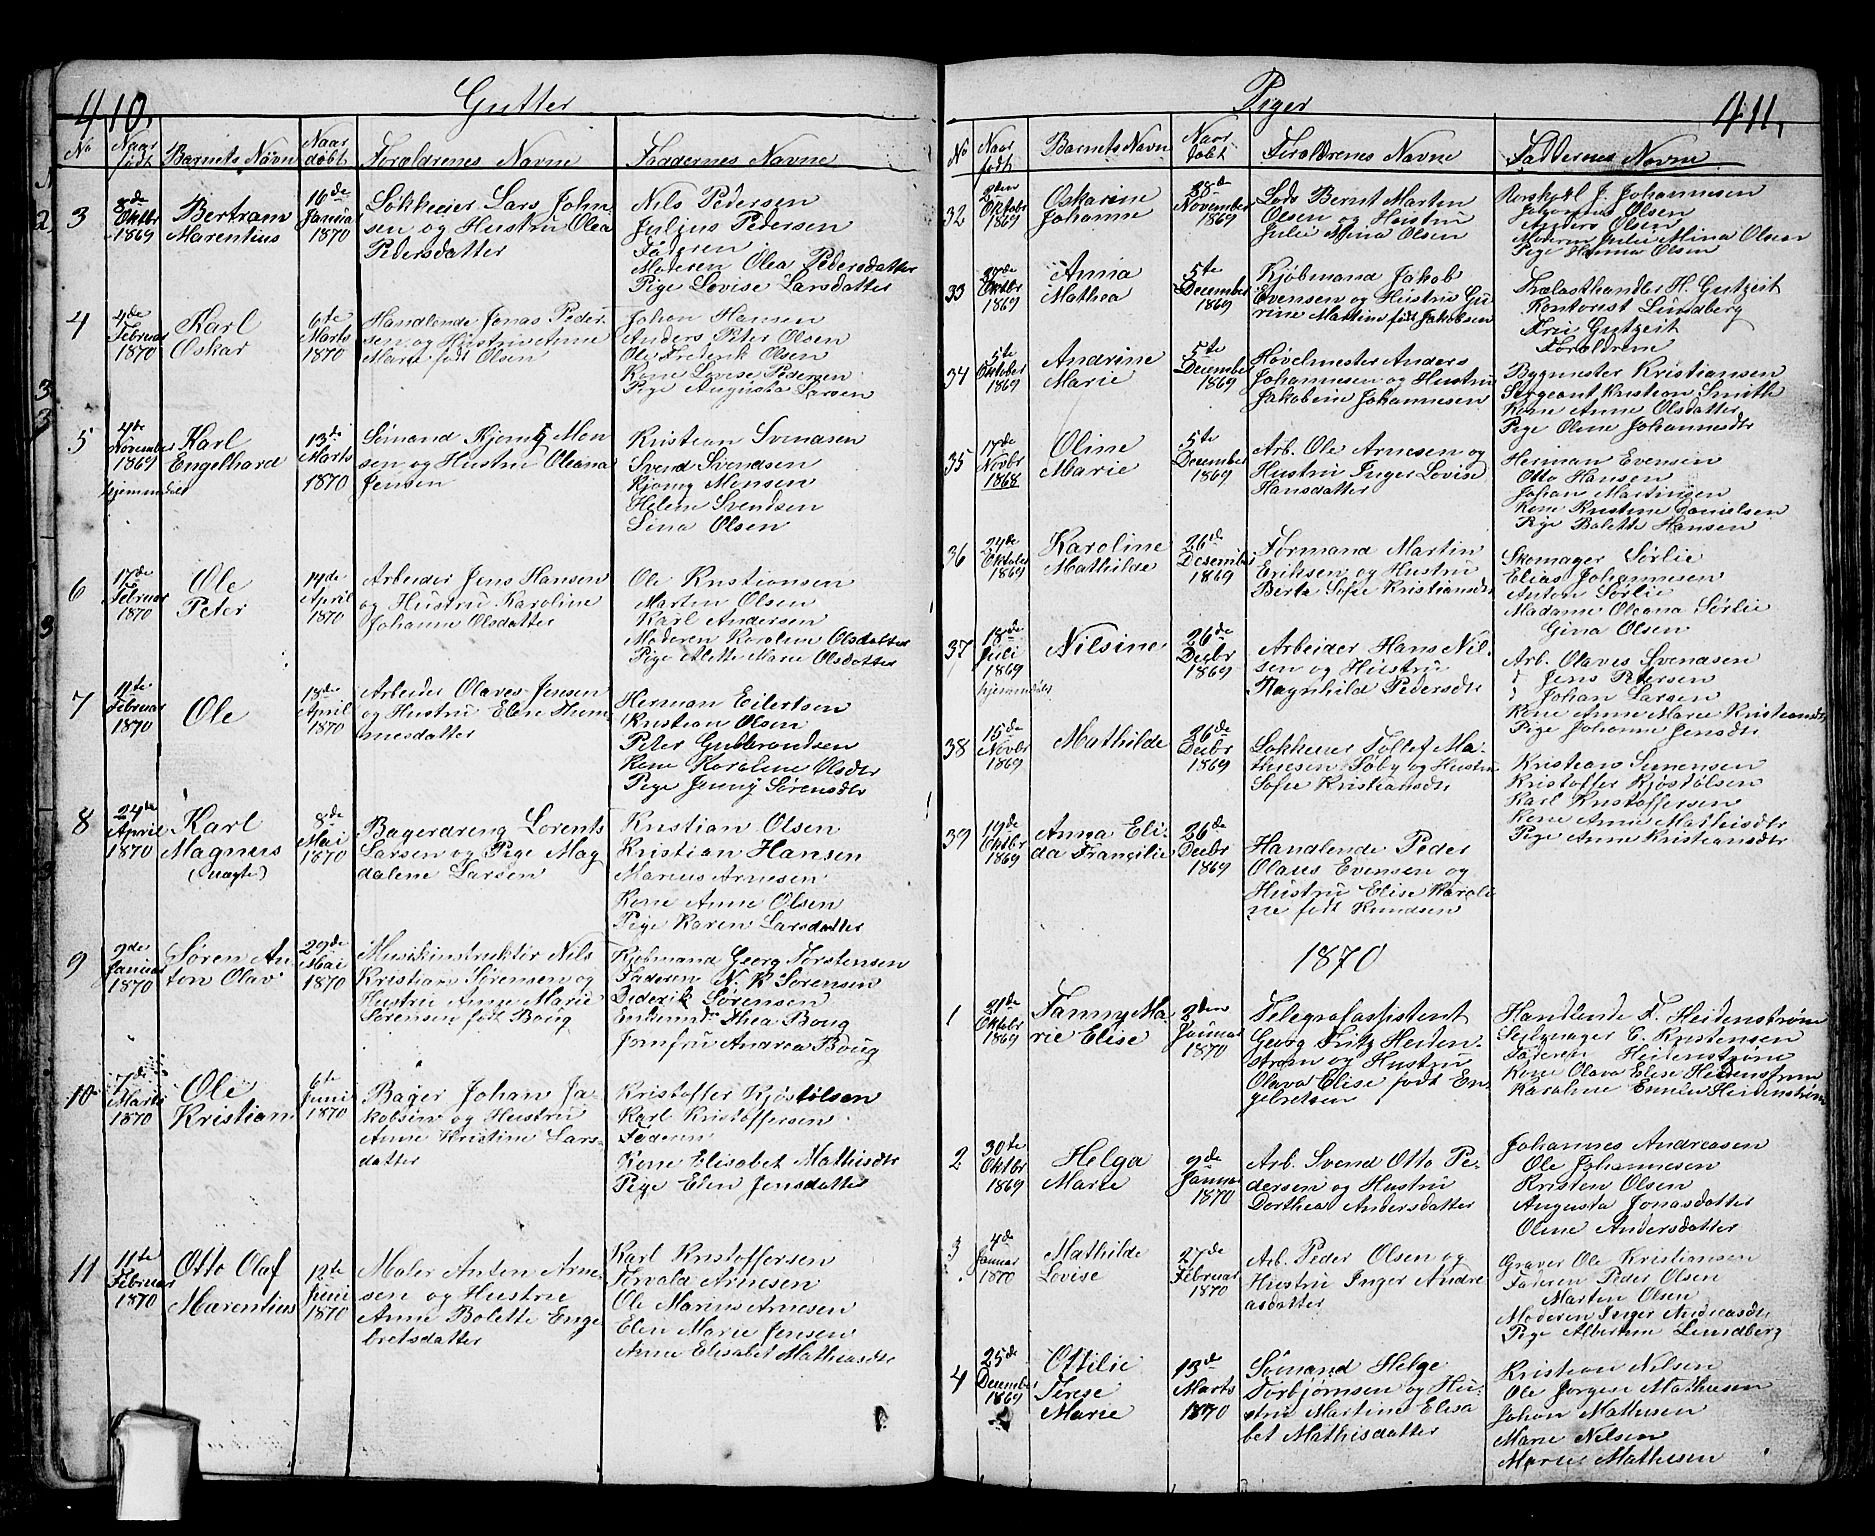 410.
Gutter
No
Naar født
Barnets Navn
Naar døbt
Forældrenes Navne
Faddernes Navne
3
8de Oktbr 1869
Bertram Marentius
16de Januar 1870
Løkkeeier Lars John-
sen og Hustru Olea
Pedersdatter
Nils Pedersen
Julius Pedersen
Faderen
Moderen Olea Pedersdatter
Pige Lovise Larsdatter
4
4de Februar 1870
Karl Oskar
6te Marts 1870
Handlende Jonas Peder-
sen og Hustru Anne
Marie født Olsen
Johan Hansen
Anders Peter Olsen
Ole Frederik Olsen
Kone Lovise Pedersen
Pige Augusta Larsen
5
4de November 1869
hjemmedøbt
Karl Engelhard
13de Marts 1870
Sømand Kjomg Mon-
sen og Hustru Oleana
Jensen
Kristian Svendsen
Svend Svendsen
Kjomg Monsen
Helene Svendsen
Lina Olsen
6
17de Februar 1870
Ole Peter
14de April 1870
Arbeider Jens Hansen
og Hustru Karoline
Johanne Olsdatter
Ole Kristiansen
Martin Olsen
Karl Andersen
Moderen Karoline Olsdatter
Pige Alette Marie Olsdatter
7
11te Februar 1870
Ole
18de April 1870
Arbeider Olaves Jensen
og Hustru Elise Thom-
mesdatter
Herman Eilertsen
Kristian Olsen
Peter Gulbrandsen
Kone Karoline Olsdtr
Pige Jenny Sørensdtr
8
24de April 1870
Karl Magnus
(uægte)
8de Mai 1870
Bagerdreng Lorents
Larsen og Pige Mag
dalene Larsen
Kristian Olsen
Kristian Hansen
Marius Arnesen
Kone Anne Olsen
Pige Karen Larsdatter
9
9de Januar 1870
Søren An-
ton Olav
29de Mai 1870
Musikinstruktør Nils
Kristian Sørensen og
Hustru Anne Marie
Sørensen født Boug
Kjøbmand Georg Torstensen
Faderen N. K Sørensen
Diderik Sørensen
Thea Boug
Jomfru Andrea Boug
10
7de Marts 1870
Ole Kristian
6te Juni 1870
Bager Johan Ja-
kobsen og Hustru
Anne Kristine Lars-
datter
Kristoffer Kjøstølsen
Karl Kristoffersen
Faderen
Kone Elisabet Mathisdtr
Pige Elen Jensdatter
11
11te Februar 1870
Otto Olaf
Marentius
12te Juni 1870
Maler Anton Arne-
sen og Hustru
Anne Bolette Enge
bretsdatter
Karl Kristoffersen
Torvald Arnesen
Ole Marius Arnesen
Elen Marie Jensen
Anne Elisabet Mathiasdtr
Piger
411.
No
Naar født
Barnets Navn
Naar døbt
Forældrenes Navne
Faddernes Navne
32
2den Oktober 1869
Oskarine Johanne
28de November 1869
Lods Bernt Marten
Olsen og Hustru
Julie Mina Olsen
J. Johannesen
Johannes Olsen
Anders Olsen
Moderen Julie Mina Olsen
Pige Hanna Olsen
33
27de Oktbr 1869
Anna Mathea
5te December 1869
Kjøbmand Jakob
Evensen og Hustru Gu-
rine Martine født Jakobsen
Trælasthandler H. Gutzeit
Kontorist Lundberg
Fru Gutzeit
Forældrene
34
5te Oktober 1869
Andrine Marie
5te December 1869
Høvelmester Anders
Johannesen og Hustru
Jakobine Johannesen
Bygmester Kristiansen
Sergeant Kristian Smith
Kone Anne Olsdatter
Pige Oline Johannesdtr
35
17de Novbr 1868
Oline Marie
5te December 1869
Arb. Ole Arnesen og
Hustru Inger Lovise
Hansdatter
Herman Evensen
Otto Hansen
Johan Martinsen
Kone Kristine Danielsen
Pige Bolette Hansen
36
24de Oktober 1869
Karoline Mathilde
26de Desember 1869
Formand Martin
Eriksen og Hustru
Berte Sofie Kristiansdt
Skomager Sørlie
Elias Johannesen
Anton Sørlie
Madame Oleana Sørlie
Gina Olsen
37
18de Juli 1869
hjemmedøbt
Nilsine
26de Decbr 1869
Arbeider Hans Nil-
sen og Hustru
Ragnhild Pedersdtr
Arb. Olaves Svendsen
Jens Petersen
Johan Larsen
Kone Anne Marie Kristiansdtr
Pige Johanne Jensdtr
38
15de Novbr 1869
Mathilde
26de Decbr 1869
Løkkeeier Tollef Ma-
thiesen Foby og Hustru
Sofie Kristiansdtr
Kristian Simensen
Kristoffer Kjøstølsen
Karl Kristoffersen
Kone Anne Mathisdtr
Pige Anne Kristiansdtr
39
19de Oktbr 1869
Anna Eli-
da Francilie
26de Decbr 1869
Handlende Peder
Olaves Evensen og
Hustru Elise Karoli
ne født Knudsen
1870
1
21de Oktbr 1869
Fanny Ma-
rie Elise
2den Januar 1870
Telegrafassistent
Georg Fritz Heiden-
strøm og Hustru
Olava Elise født En-
gebretsen
Handlende F. Heidenstrøm
Seilmager E. Kristensen
Faderen Heidenstrøm
Kone Olava Elise Heidenstrøm
Karoline Emilie Heidenstrøm
2
30te Oktbr 1869
Helga Marie
9de Januar 1870
Arb. Svend Otto Pe-
dersen og Hustru
Dorthea Andersdatter
Johannes Andreasen
Ole Johannesen
Kristen Olsen
Augusta Jonasdatter
Oline Andersdatter
3
4de Januar 1870
Mathilde Lovise
27de Februar 1870
Arb. Peder Olsen og
Hustru Inger Andre
asdatter
Graver Ole Kristiansen
Faderen Peder Olsen
Martin Olsen
Moderen Inger Andreasdtr
Pige Albertine Lundberg
4
25de December 1869
Ottilie Terese Marie
13de Marts 1870
Sømand Helge
Torbjørnsen og Hu-
stru Martine Elisa
bet Mathisdatter
Kristian Nilsen
Ole Jørgen Mathisen
Johan Mathisen
Marie Nilsen
Marie Mathisen